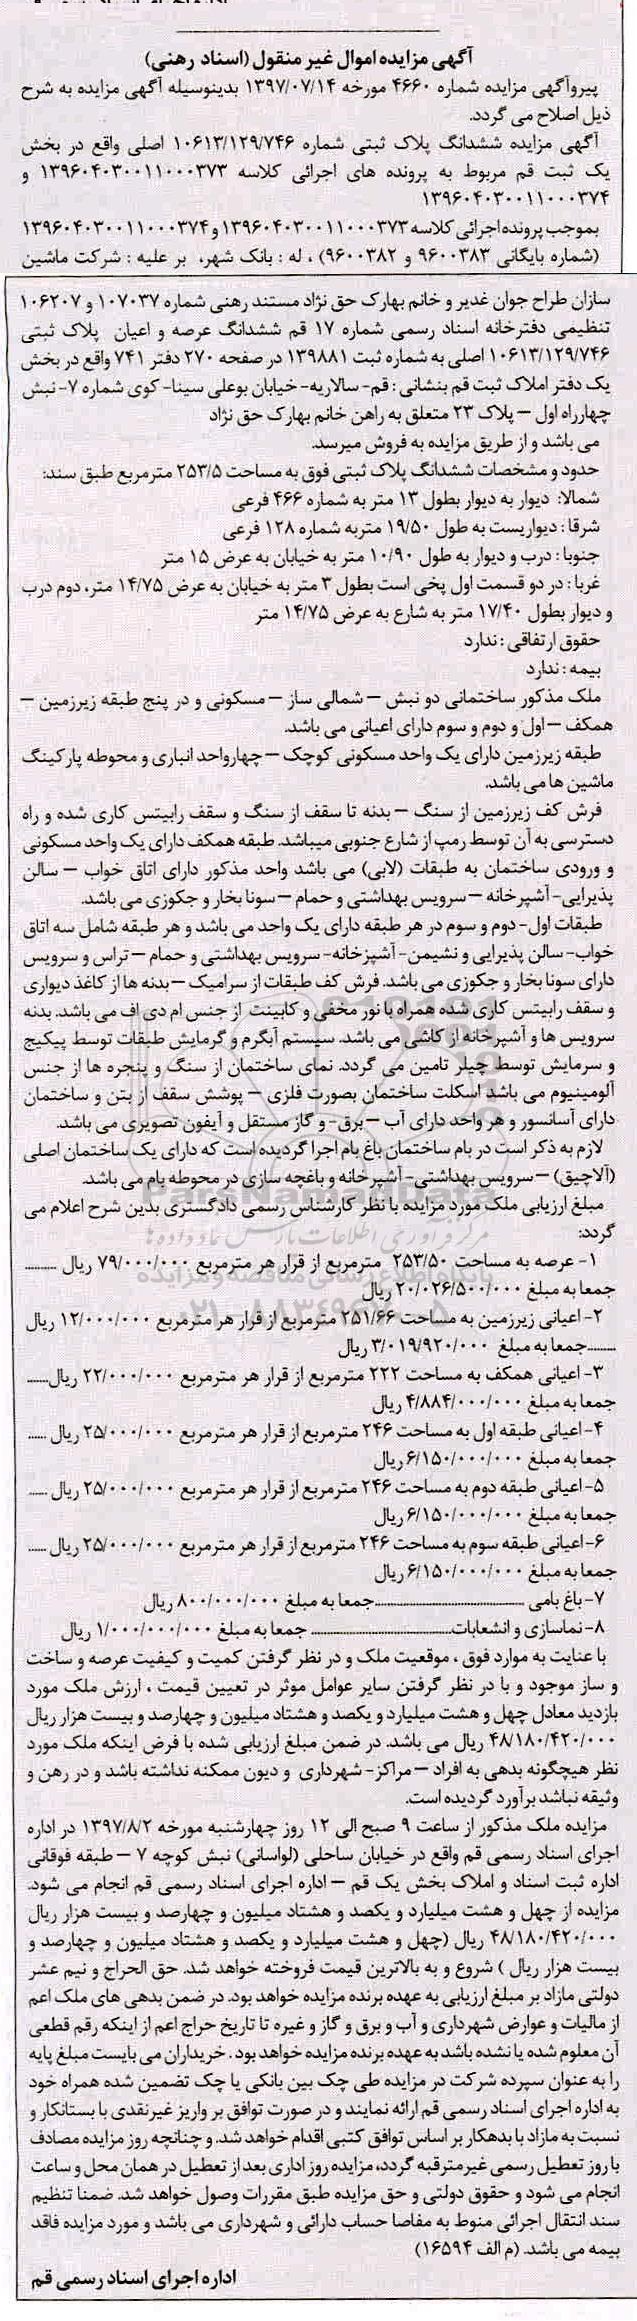 آگهی مزایده اموال غیر منقول (اسناد رهنی)
پیروآگهی مزایده شماره ۴۶۶۰ مورخه ۱۳۹۷/۰۷/۱۴ بدینوسیله آگهی مزایده به شرح
ذیل اصلاح می گردد.
آگهی مزایده ششدانگ پلاک ثبتی شماره ۱۰۶۱۳/۱۲۹/۷۴۶ اصلی واقع در بخش
یک ثبت قم مربوط به پرونده های اجرائی کلاسه ۱۳۹۶۰۴۰۳۰۰۱۱۰۰۰۳۷۳ و
۱۳۹۶۰۴۰۳۰۰۱۱۰۰۰۳۷۴
بموجب پرونده اجرائی کلاسه ۱۳۹۶۰۴۰۳۰۰۱۱۰۰۰۳۷۳ و ۱۳۹۶۰۴۰۳۰۰۱۱۰۰۰۳۷۴
(شماره بایگانی ۹۶۰۰۳۸۳ و ۹۶۰۰۳۸۲) ، له : بانک شهر، بر علیه : شرکت ماشین
سازان طراح جوان غدیر و خانم بهارک حق نژاد مستند رهنی شماره ۱۰۷۰۳۷ و ۱۰۶۲۰۷
تنظیمی دفترخانه اسناد رسمی شماره ۱۷ قم ششدانگ عرصه و اعیان پلاک ثبتی
۱۰۶۱۳/۱۲۹/۷۴۶ اصلی به شماره ثبت ۱۳۹۸۸۱ در صفحه ۲۷۰ دفتر ۷۴۱ واقع در بخش
یک دفتر املاک ثبت قم بنشانی : قم- سالاریه- خیابان بوعلی سینا- کوی شماره ۷- نبش
چهارراه اول – پلاک ۲۳ متعلق به راهن خانم بهارک حق نژاد
می باشد و از طریق مزایده به فروش میرسد.
حدود و مشخصات ششدانگ پلاک ثبتی فوق به مساحت ۲۵۳/۵ مترمربع طبق سند:
شمالا: دیوار به دیوار بطول ۱۳ متر به شماره ۴۶۶ فرعی
شرقا : دیواریست به طول ۱۹/۵۰ متربه شماره ۱۲۸ فرعی
جنوبا : درب و دیوار به طول ۱۰/۹۰ متر به خیابان به عرض ۱۵ متر
غربا : در دو قسمت اول پخی است بطول ۳ متر به خیابان به عرض ۱۴/۷۵ متر، دوم درب
و دیوار بطول ۱۷/۴۰ متر به شارع به عرض ۱۴/۷۵ متر
حقوق ارتفاقی : ندارد
بیمه : ندارد
ملک مذکور ساختمانی دو نبش – شمالی ساز – مسکونی و در پنج طبقه زیرزمین –
همکف – اول و دوم و سوم دارای اعیانی می باشد.
طبقه زیرزمین دارای یک واحد مسکونی کوچک – چهارواحد انباری و محوطه پارکینگ
ماشین ها می باشد.
فرش کف زیرزمین از سنگ – بدنه تا سقف از سنگ و سقف رابیتس کاری شده و راه
دسترسی به آن توسط رمپ از شارع جنوبی میباشد. طبقه همکف دارای یک واحد مسکونی
و ورودی ساختمان به طبقات (لابی) می باشد واحد مذکور دارای اتاق خواب – سالن
پذیرایی- آشپزخانه – سرویس بهداشتی و حمام – سونا بخار و جکوزی می باشد.
طبقات اول- دوم و سوم در هر طبقه دارای یک واحد می باشد و هر طبقه شامل سه اتاق
خواب- سالن پذیرایی و نشیمن- آشپزخانه- سرویس بهداشتی و حمام – تراس و سرویس
دارای سونا بخار و جکوزی می باشد. فرش کف طبقات از سرامیک – بدنه ها از کاغذ دیواری
و سقف رابیتس کاری شده همراه با نور مخفی و کابینت از جنس ام دی اف می باشد. بدنه
سرویس ها و آشپزخانه از کاشی می باشد. سیستم آبگرم و گرمایش طبقات توسط پیکیج
و سرمایش توسط چیلر تامین می گردد. نمای ساختمان از سنگ و پنجره ها از جنس
آلومینیوم می باشد اسکلت ساختمان بصورت فلزی – پوشش سقف از بتن و ساختمان
دارای آسانسور و هر واحد دارای آب – برق- و گاز مستقل و آیفون تصویری می باشد.
لازم به ذکر است در بام ساختمان باغ بام اجرا گردیده است که دارای یک ساختمان اصلی
(آلاچیق) – سرویس بهداشتی- آشپزخانه و باغچه سازی در محوطه بام می باشد.
ParsNamadData
مبلغ ارزیابی ملک مورد مزایده با نظر کارشناس رسمی دادگستری بدین شرح اعلام می
گردد:
۱- عرصه به مساحت ۲۵۳/۵۰ مترمربع از قرار هر مترمربع ۷۹/۰۰۰/۰۰۰ ریال ..........
جمعا به مبلغ ۲۰/۰۲۶/۵۰۰/۰۰۰ ریال
۲- اعیانی زیرزمین به مساحت ۲۵۱/۶۶ مترمربع از قرار هر مترمربع ۱۲/۰۰۰/۰۰۰ ریال
..........جمعا به مبلغ ۳/۰۱۹/۹۲۰/۰۰۰ ریال
۳- اعیانی همکف به مساحت ۲۲۲ مترمربع از قرار هر مترمربع ۲۲/۰۰۰/۰۰۰ ریال.......
جمعا به مبلغ ۴/۸۸۴/۰۰۰/۰۰۰ ریال
۴- اعیانی طبقه اول به مساحت ۲۴۶ مترمربع از قرار هر مترمربع ۲۵/۰۰۰/۰۰۰ ریال ......
جمعا به مبلغ ۶/۱۵۰/۰۰۰/۰۰۰ ریال
۵- اعیانی طبقه دوم به مساحت ۲۴۶ مترمربع از قرار هر مترمربع ۲۵/۰۰۰/۰۰۰ ریال ......
جمعا به مبلغ ۶/۱۵۰/۰۰۰/۰۰۰ ریال
۶- اعیانی طبقه سوم به مساحت ۲۴۶ مترمربع از قرار هر مترمربع ۲۵/۰۰۰/۰۰۰ ریال ......
جمعا به مبلغ ۶/۱۵۰/۰۰۰/۰۰۰ ریال
۷- باغ بامی ..............................جمعا به مبلغ ۸۰۰/۰۰۰/۰۰۰ ریال
۸- نماسازی و انشعابات.............................. جمعا به مبلغ ۱/۰۰۰/۰۰۰/۰۰۰ ریال
با عنایت به موارد فوق ، موقعیت ملک و در نظر گرفتن کمیت و کیفیت عرصه و ساخت
و ساز موجود و با در نظر گرفتن سایر عوامل موثر در تعیین قیمت ، ارزش ملک مورد
بازدید معادل چهل و هشت میلیارد و یکصد و هشتاد میلیون و چهارصد و بیست هزار ریال
۴۸/۱۸۰/۴۲۰/۰۰۰ ریال می باشد. در ضمن مبلغ ارزیابی شده با فرض اینکه ملک مورد
نظر هیچگونه بدهی به افراد – مراکز- شهرداری و دیون ممکنه نداشته باشد و در رهن و
وثیقه نباشد برآورد گردیده است.
مزایده ملک مذکور از ساعت ۹ صبح الی ۱۲ روز چهارشنبه مورخه ۱۳۹۷/۸/۲ در اداره
اجرای اسناد رسمی قم واقع در خیابان ساحلی (لواسانی) نبش کوچه ۷ – طبقه فوقانی
اداره ثبت اسناد و املاک بخش یک قم – اداره اجرای اسناد رسمی قم انجام می شود.
مزایده از چهل و هشت میلیارد و یکصد و هشتاد میلیون و چهارصد و بیست هزار ریال
۴۸/۱۸۰/۴۲۰/۰۰۰ ریال (چهل و هشت میلیارد و یکصد و هشتاد میلیون و چهارصد و
بیست هزار ریال ) شروع و به بالاترین قیمت فروخته خواهد شد. حق الحراج و نیم عشر
دولتی مازاد بر مبلغ ارزیابی به عهده برنده مزایده خواهد بود. در ضمن بدهی های ملک اعم
از مالیات و عوارض شهرداری و آب و برق و گاز و غیره تا تاریخ حراج اعم از اینکه رقم قطعی
آن معلوم شده یا نشده باشد به عهده برنده مزایده خواهد بود . خریداران می بایست مبلغ پایه
را به عنوان سپرده شرکت در مزایده طی چک بین بانکی یا چک تضمین شده همراه خود
به اداره اجرای اسناد رسمی قم ارائه نمایند و در صورت توافق بر واریز غیرنقدی با بستانکار و
نسبت به مازاد با بدهکار بر اساس توافق کتبی اقدام خواهد شد. و چنانچه روز مزایده مصادف
با روز تعطیل رسمی غیرمترقبه گردد، مزایده روز اداری بعد از تعطیل در همان محل و ساعت
انجام می شود و حقوق دولتی و حق مزایده طبق مقررات وصول خواهد شد. ضمنا تنظیم
سند انتقال اجرائی منوط به مفاصا حساب دارائی و شهرداری می باشد و مورد مزایده فاقد
بیمه می باشد. (م الف ۱۶۵۹۴)
اداره اجرای اسناد رسمی قم